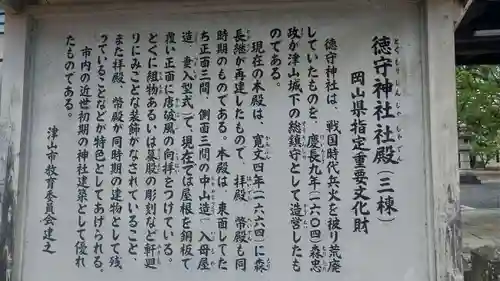 徳守神社社殿(三棟)
岡山県指定重要文化財
徳守神社は、戦国時代兵火を被り荒廃
していたものを、慶長九年(一六〇四)森忠
政が津山城下の総鎮守として造営したも
のである。
現在の本殿は、寛文四年(一六六四)に森
長継が再建したもので、拝殿 幣殿も同
時期のものである。本殿は、東面してた
ち正面三間、側面三間の中山造(入母屋
造、妻入型式)で、現在では屋根を銅板で
覆い正面に唐破風の向拝をつけている。
とくに組物あるいは蟇股の彫刻など軒廻
りにみごとな装飾がなされていること、
また拝殿、幣殿が同時期の建物として残
っていることなどが特色としてあげられる。
市内の近世初期の神社建築として優れ
たものである。
津山市教育委員会建之